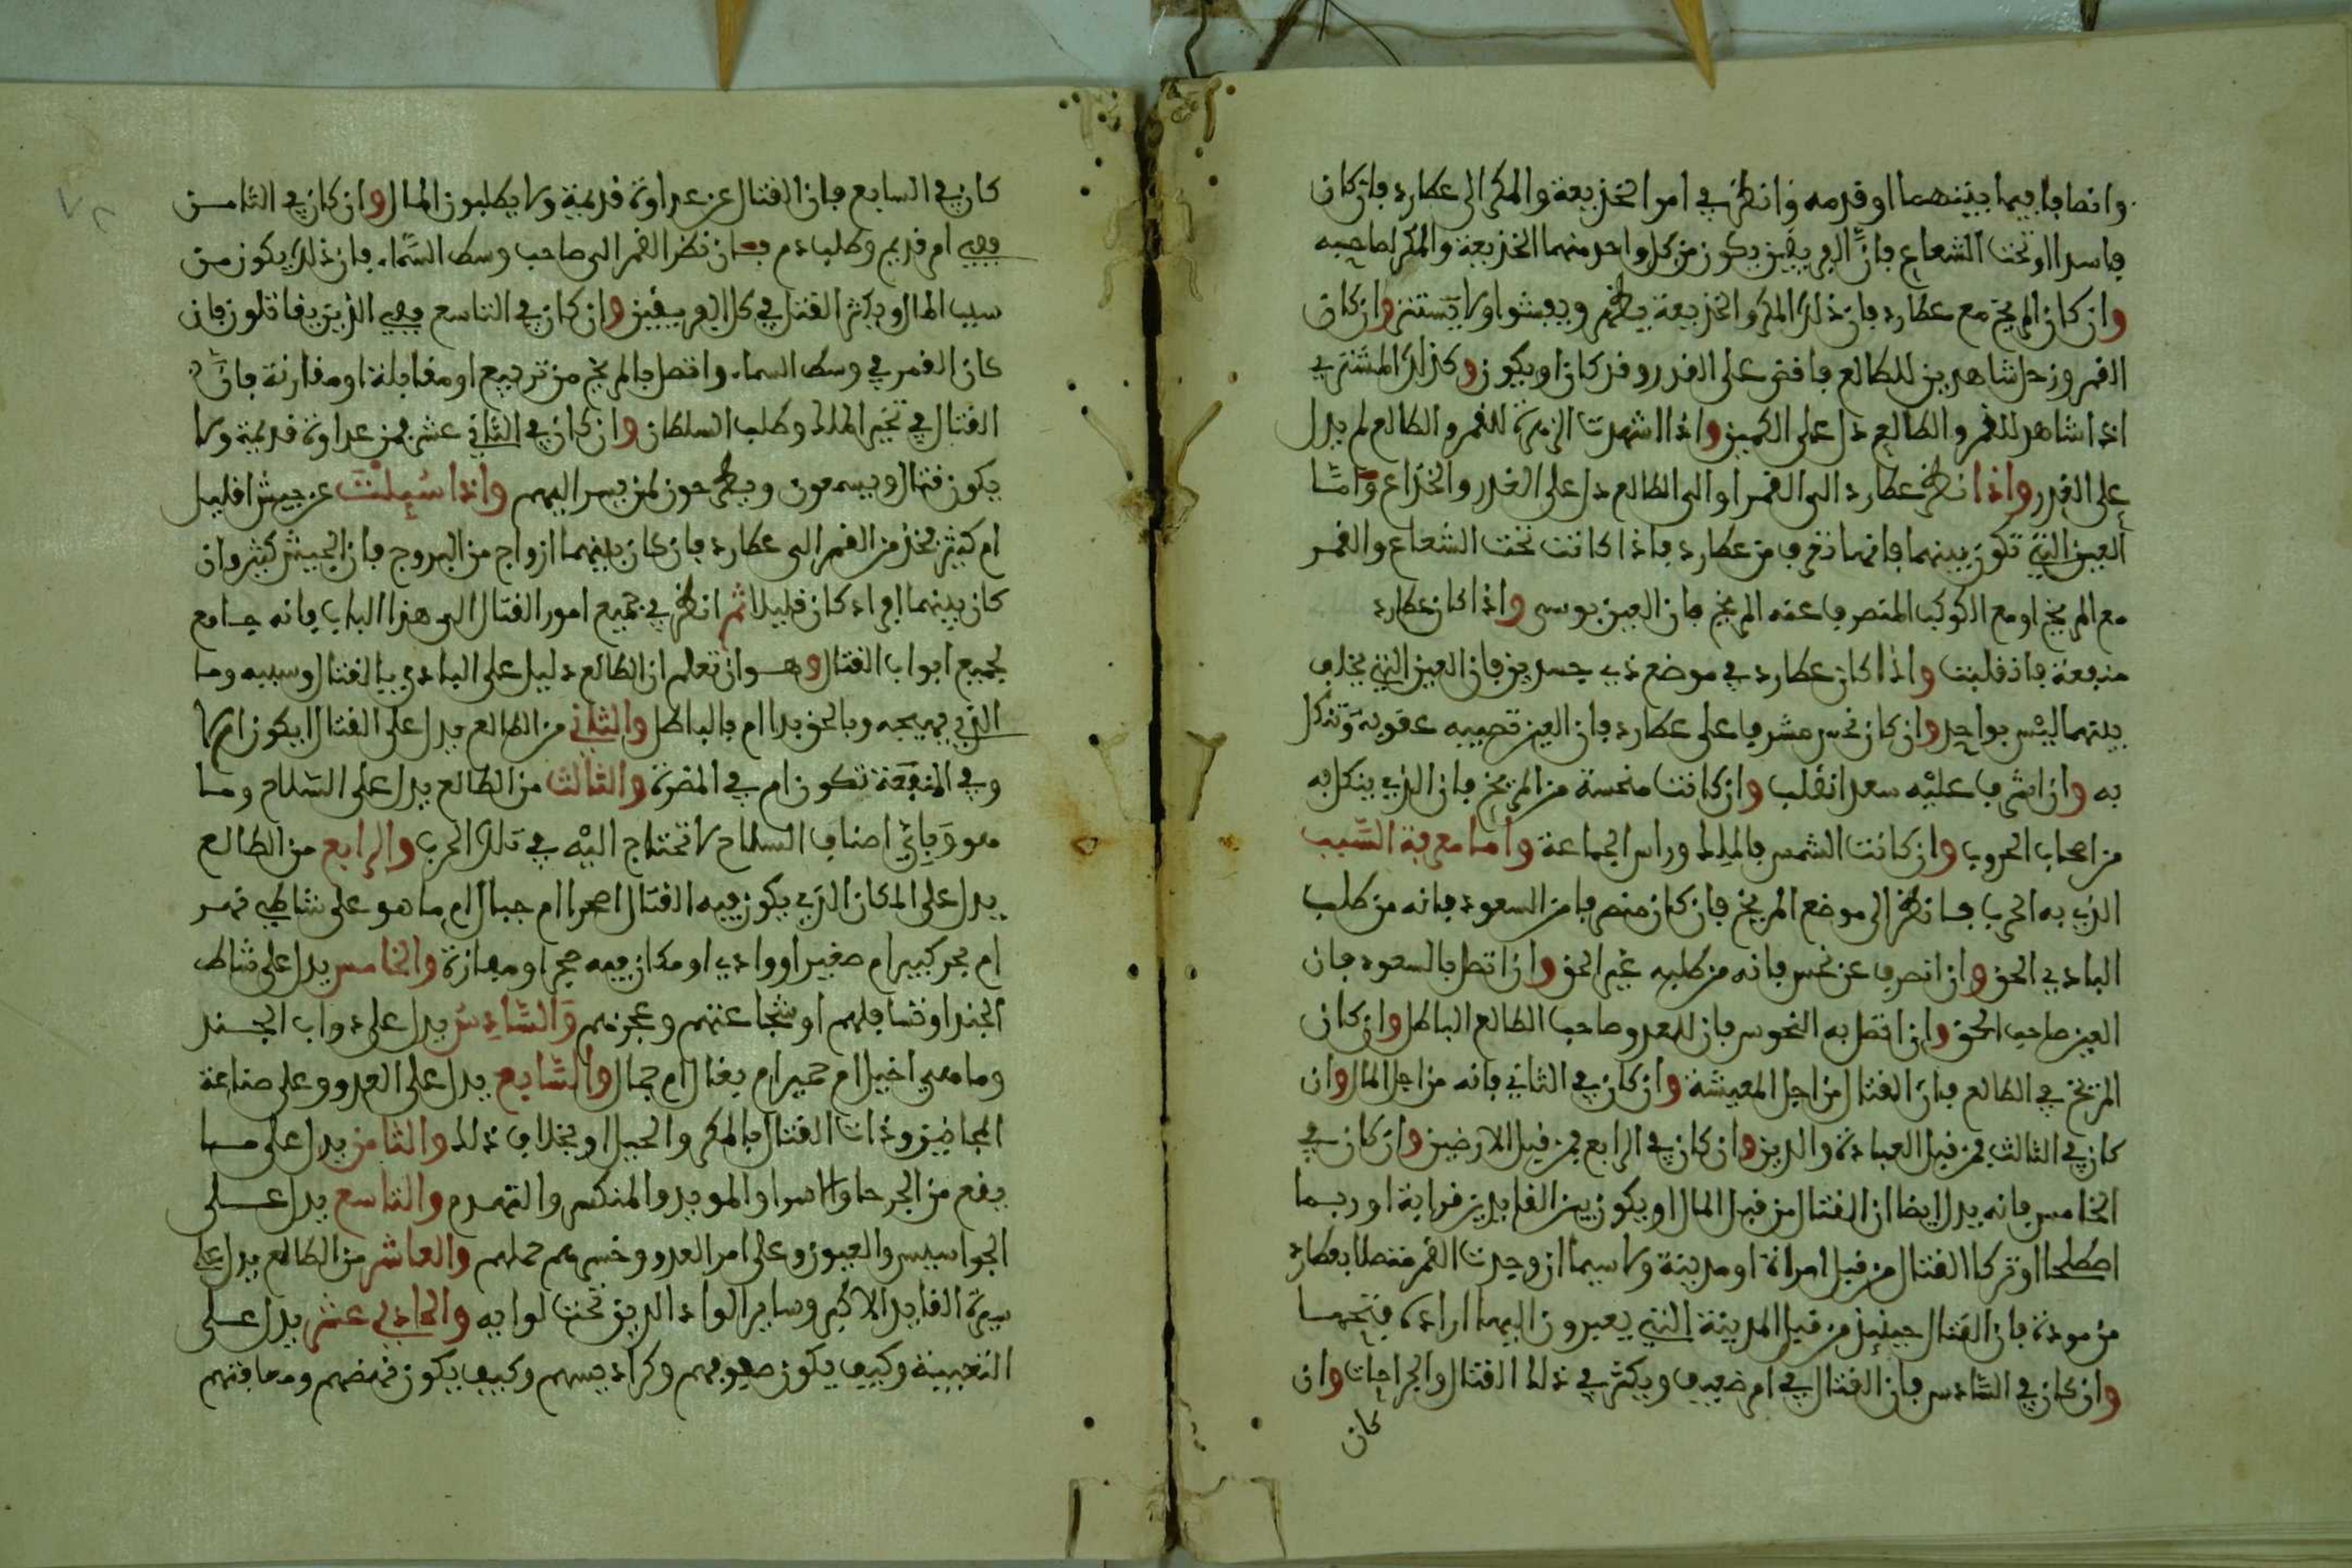 وانصافا فيما بينهما او قدمه وانظر في امر الخديعة والمكر الى عطارد فان كان
فاسدا او تحت الشعاع فان الفريقين يكون من كل واحد منهما الخديعة والمكر لصاحبه
وان كان المريخ مع عطارد فان ذلك المكر والخديعة يظهر ويفشوا ولا يستتر وان كان
القمر وزحل شاهدين للطالع فاقض على الغدر وقد كان او يكون وكذلك المشتري
اذا شاهد للقمر والطالع دل على الكمين واذا شهدت الزهرة للقمر والطالع لم يدل
على الغدر واذا نظر عطارد الى القمر او الى الطالع دل على الغدر والخداع واما
العين التي تكون بينهما فانها تعرف من عطارد فاذا كانت تحت الشعاع والقمر
مع المريخ او مع الكوكب المنصرف عنه المريخ فان العين يوسى واذا كان عطارد
منفعة فاذ قلبت واذا كان عطارد في موضع ذي جسدين فان العين التي يختلف
بينهما ليس بواحد وان كان نحس مشرفا على عطارد فان العين تصيبه عقوبة وتنكل
به وان اشرف عليه سعد انقلب وان كانت منحسة من المريخ فان الذي ينكل به
من اصحاب الحروب وان كانت الشمس فالملك وراس الجماعة واما معرفة السبب
الذي به الحرب فانظر الى موضع المريخ فان كان منصرفا من السعود فانه من طلب
البادي الحق وان انصرف عن نحس فانه من طلبه غير الحق وان اتصل بالسعود فان
العين صاحب الحق وان اتصل به النحوس فان للعدو صاحب الطالع الباطل وان كان
المريخ في الطالع فان القتال من اجل المعيشة وان كان في الثاني فانه من اجل المال وان
كان في الثالث فمن قبل العبادة والدين وان كان في الرابع فمن قبل الارضين وان كان في
الخامس فانه يدل ايضا ان القتال من قبل المال او يكون بين القايدين قرابة او ربما
اصطلحا او تركا القتال من قبل امراة او مدينة ولا سيما ان وجدت القمر متصلا بعطارد
من مودة فان القتال حينئذ من قبل المدينة التي يعبرون اليها ارادة فتحها
وان كان في السادس فان القتال في ام ضعيف ويكثر في ذلك القتال والجراحات وان
كان
كان في السابع فان القتال عن عداوة قديمة ولا يطلبون المال وان كان في الثامن
ففي ام قديم وطلب دم فان نظر القمر الى صاحب وسط السماء فان ذلك يكون من
سبب المال ويكثر القتل في كل الفريقين وان كان في التاسع ففي الذين يقاتلون فان
كان القمر في وسط السماء واتصل بالمريخ من تربيع او مقابلة او مقارنة فان
القتال في تخير الملك وطلب السلطان وان كان في الثاني عشر فمن عداوة قديمة ولا
يكون قتال ويسمعون ويطرحون لمن يسر اليهم واذا سيلت عن جيش اقليل
ام كثير فخذ من القمر الى عطارد فان كان بينهما ازواج من البروج فان الجيش كثير وان
كان بينهما افراد كان قليلا ثم انظر في جميع امور القتال الى هذا الباب فانه جامع
لجميع ابواب القتال وهو ان تعلم ان الطالع دليل على البادي بالقتال وسببه وما
الذي يهيجه وبالحق بدا ام بالباطل والثاني من الطالع يدل على القتال ايكون ام لا
وفي المنفعة تكون ام في المضرة والثالث من الطالع يدل على السلاح وما
هو وباي اصناف السلاح لا تحتاج اليه في تلك الحرب والرابع من الطالع
يدل على المكان الذي يكون فيه القتال اصحرا ام جبال ام ما هو على شاطي نهر
ام بحر كبير ام صغير او وادي او مكان فيه حجر او مغازة والخامس يدل على نشاط
الجند او تشاقلهم او شجاعتهم وعجزهم والسادس يدل على دواب الجند
وما هي اخيل ام حمير ام بغال ام جمال والسابع يدل على العدو وعلى صناعة
المجانيق وذات القتال بالمكر والحيل او بخلاف ذلك والثامن يدل على ما
يقع من الجرحا والاسرا والمويد والمنكس والتهدم والتاسع يدل على
الجواسيس والعيون وعلى امر العدو وخسرهم حملهم والعاشر من الطالع يدل على
سيرة القايد الاكبر وساير القواد الذين تحت لوايه والحادي عشر يدل على
التعبية وكيف يكون صفوفهم وكراديسهم وكيف يكون نهضهم ومصافتهم